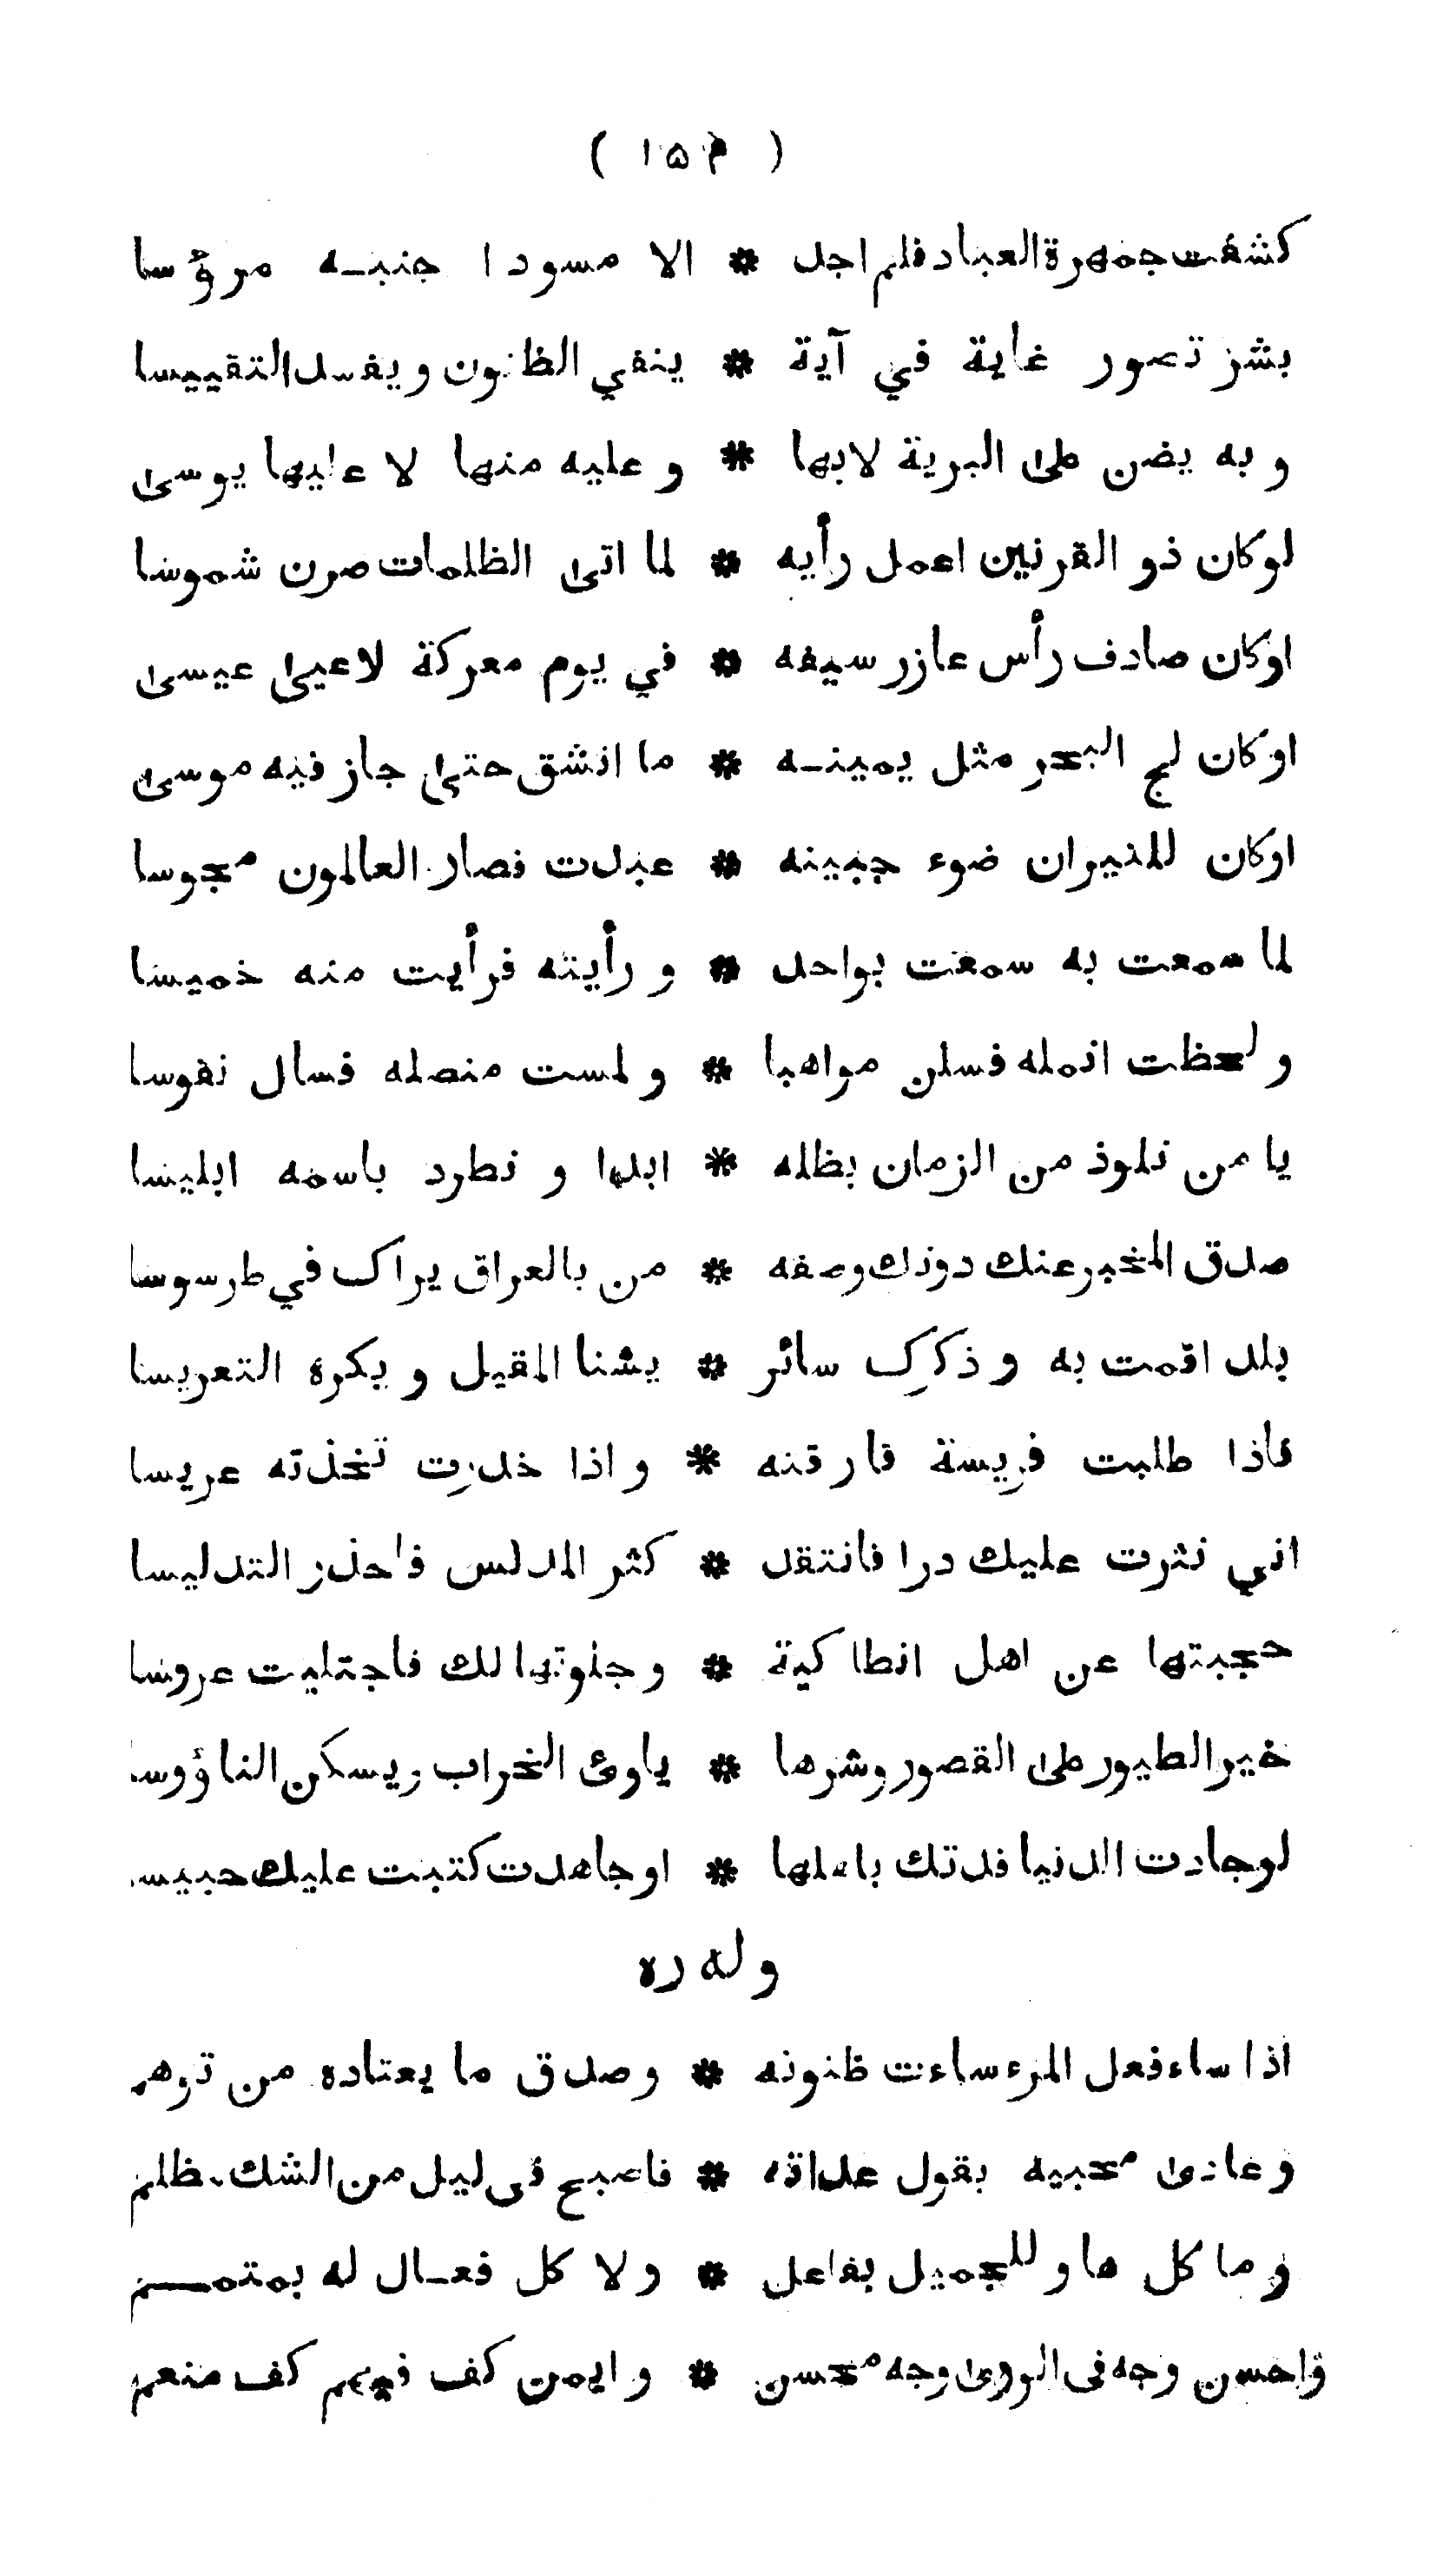 ( ١٥٤ )
كشفت جمهرة العباد فلم اجد * الا مسودا جنبـه مرؤسا
بشر تصور غاية في آية * ينفي الظنون و يفسد التقييسا
و به يضن على البرية لابها * و عليه منها لا عليها يوسى
لوكان ذو القرنين اعمل رأيه * لما اتى الظلمات صرن شموسا
اوكان صادف رأس عازر سيفه * في يوم معركة لاعيى عيسى
اوكان لج البحر مثل يمينـه * ما انشق حتى جاز فيه موسى
اوكان للنيران ضوء جبينه * عبدت فصار العالمون مجوسا
لما سمعت به سمعت بواحد * و رأيته فرأيت منه خميسا
و لحظت انمله فسلن مواهبا * و لمست منصله فسال نفوسا
يا من نلوذ من الزمان بظله * ابدا و نطرد باسمه ابليسا
صدق المخبر عنك دونك وصفه * من بالعراق يراك في طرسوسا
بلد اقمت به و ذكرك سائر * يشنا المقيل و يكره التعريسا
فاذا طلبت فريسة فارقته * و اذا خدرت تخذته عريسا
اني نثرت عليك درا فانتقد * كثر المدلس فاحذر التدليسا
حجبتها عن اهل انطاكية * و جلوتها لك فاجتليت عروسا
خير الطيور على القصور وشرها * ياوى الخراب ويسكن الناؤوسا
لوجادت الدنيا فدتك باهلها * اوجاهدت كتبت عليك حبيسا
و له ره
اذا ساء فعل المرء ساءت ظنونه * و صدق ما يعتاده من توهم
وعادى محبيه بقول عداته * فاصبح فى ليل من الشك مظلم
و ما كل هاو للجميل بفاعل * و لا كل فعـال له بمتمــم
واحسن وجه فى الورى وجه محسن * و ايمن كف فيهم كف منعم